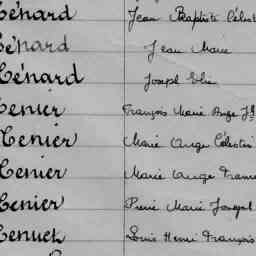 Ténard Jean Baptiste Célest
Ténard Jean Marie
Ténard Joseph Elie
Tenier François Marie Ange Jh
Tenier Marie Ange Célestin
Tenier Marie Ange Franc
Tenier Pierre Marie Joseph
Tenuel Louis Henri François